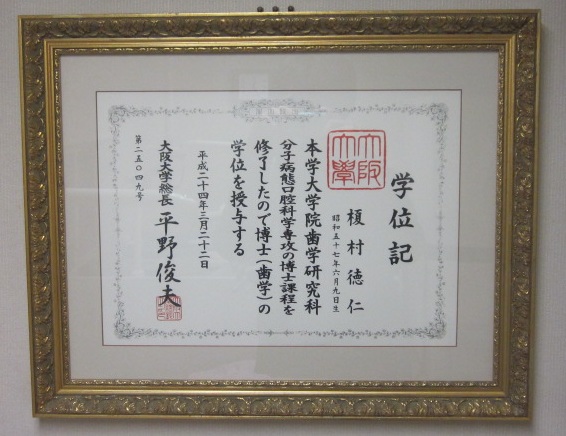 学位記
大阪大学
榎村徳仁
昭和五十七年六月九日生
本学大学院歯学研究科
分子病態口腔科学専攻の博士課程を
修了したので博士（歯学）の
学位を授与する
平成二十四年三月二十二日
大阪大学総長 平野俊夫
第二五〇四九号